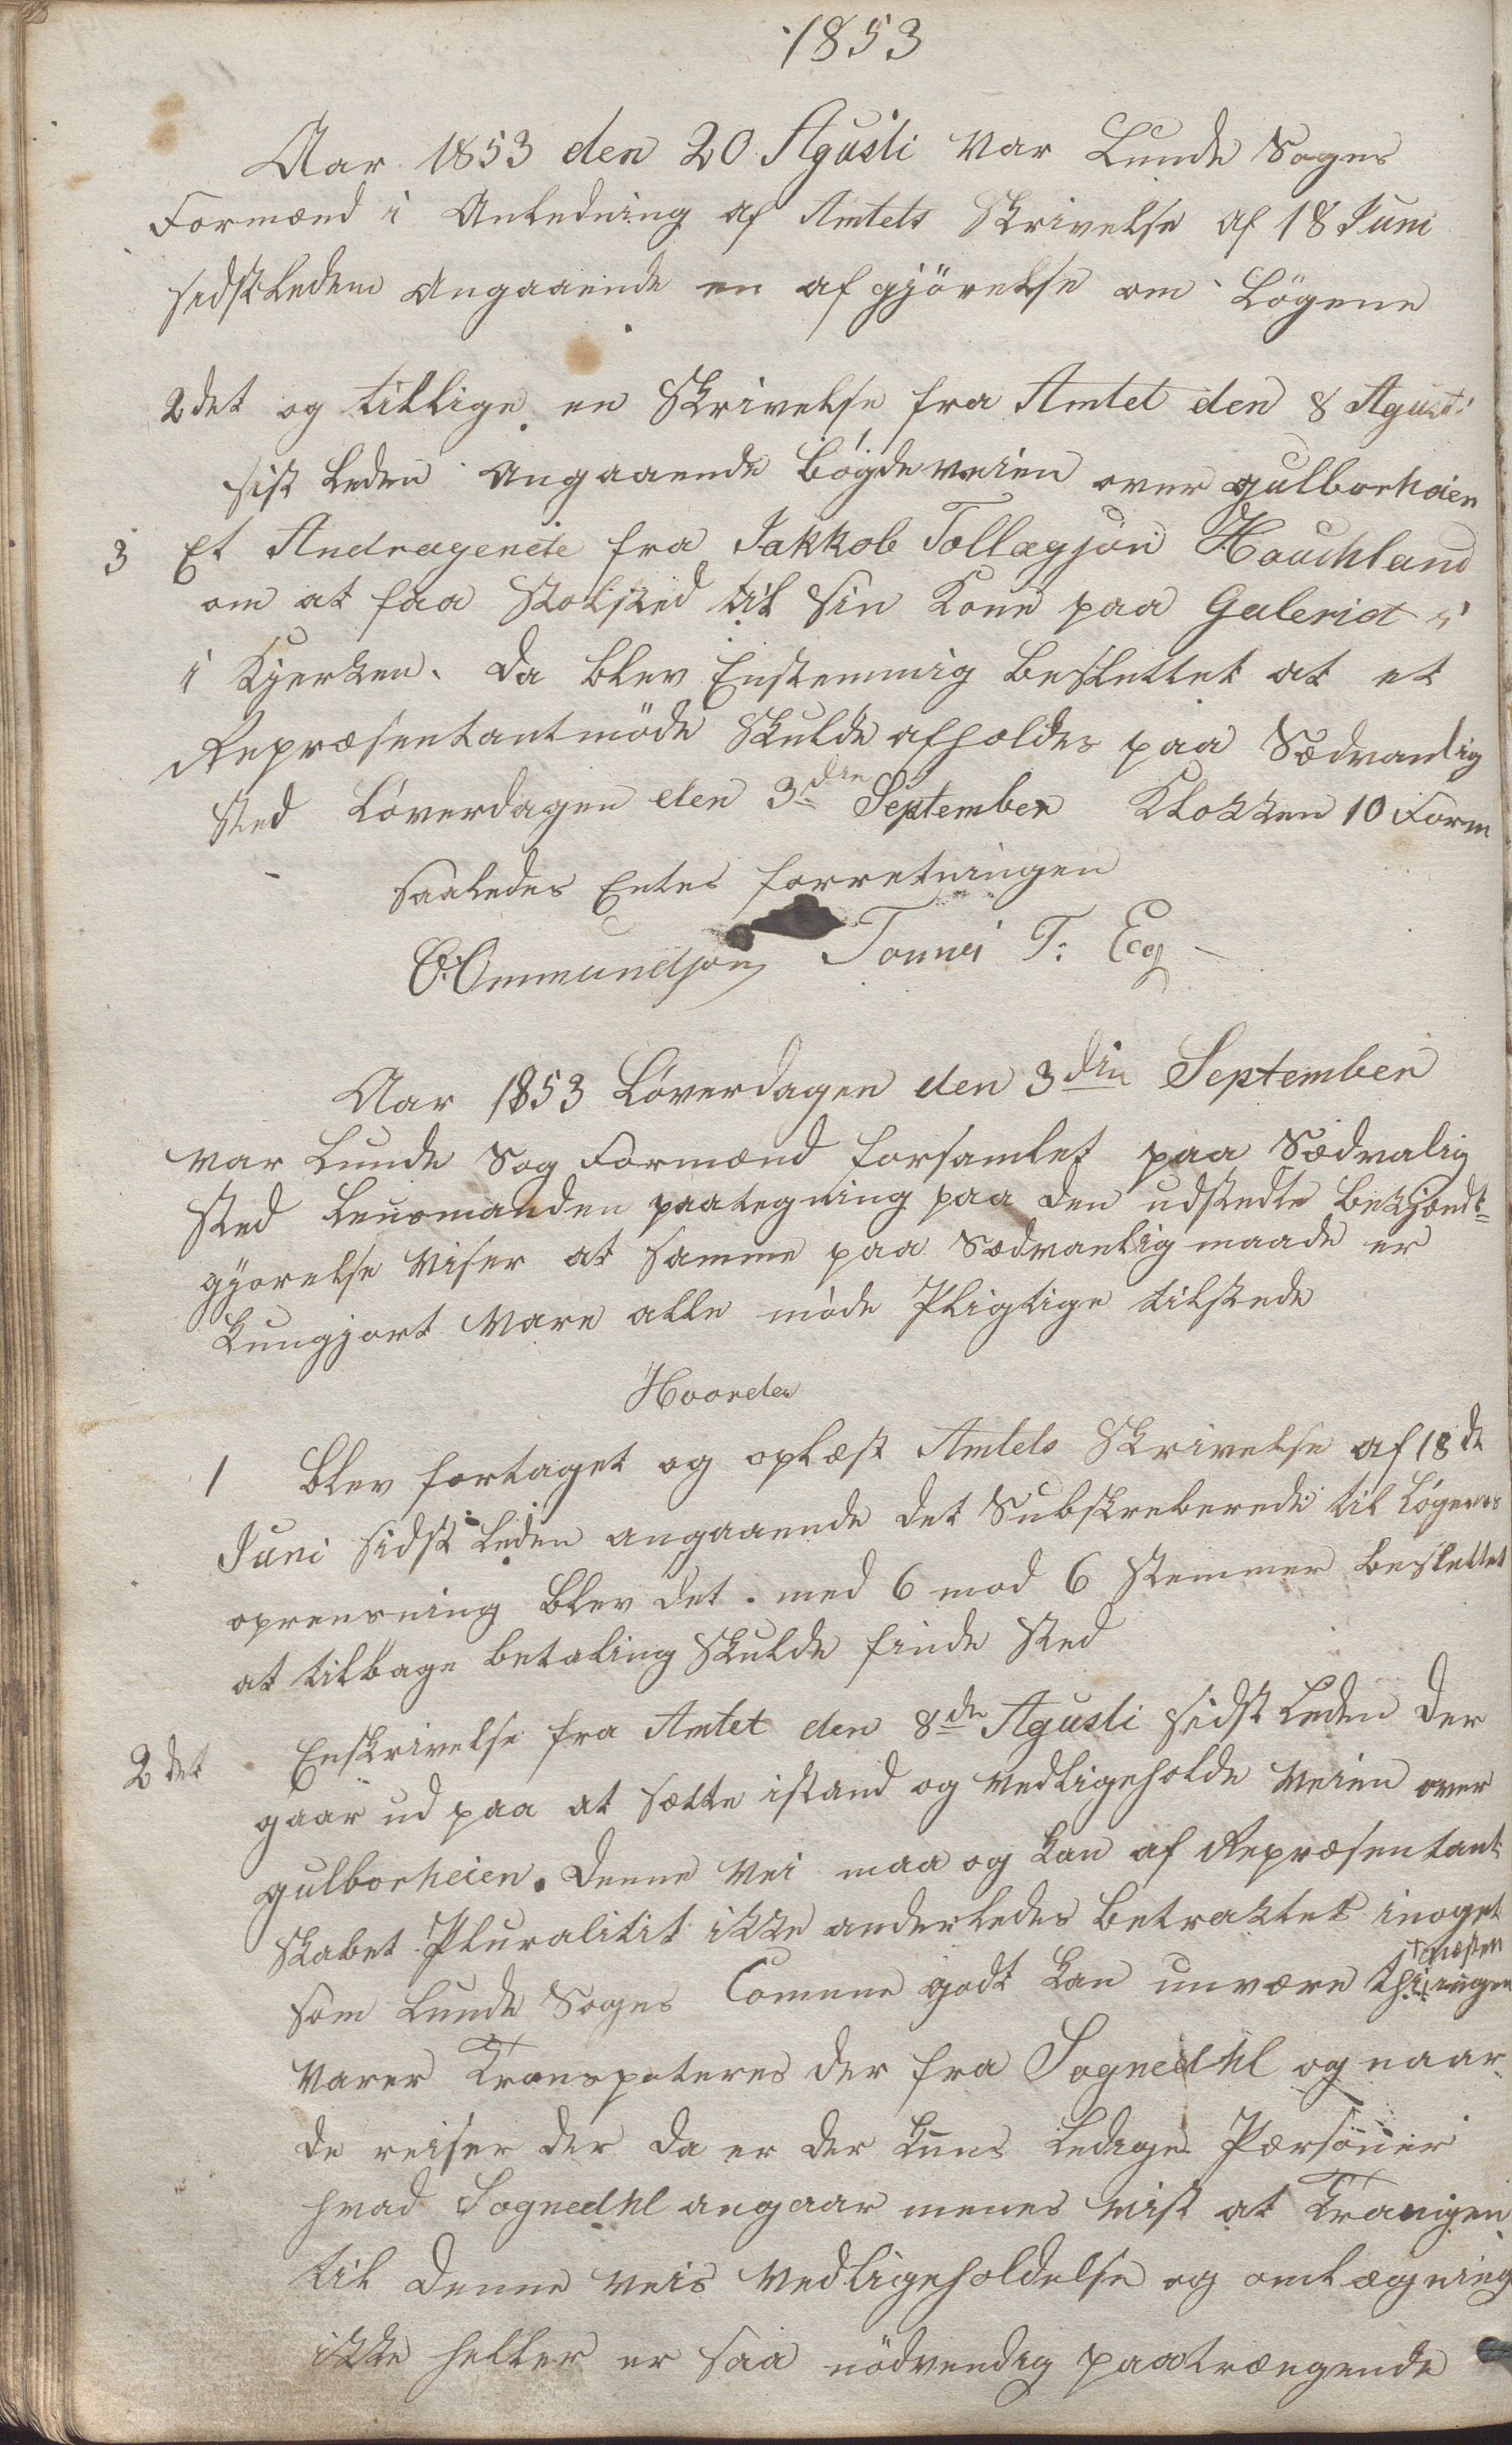 1853
Aar 1853 den 20 Agusti var Lunde Sogns
Formænd i Anledning af Amtets Skrivelse af 18 Juni
sidstleden Angaaende en afgjörelse om Lögene
2det og tillige en Skrivelse fra Amtet den 8 Agusti
sist leden Angaaende bögdeveien over gulborheien
3 Et Andragende fra Jakkob Tollagsön Hauchland
om at faa Stolsted til sin Kone paa Galeriet i
i Kjerken. da blev Enstemmig Besluttet at et
Repræsentantmöde Skulde afholdes paa Sædvanlig
Sted Löverdagen den 3die September Klokken 10 Form
saaledes Entes forretningen
O. Ommundsön Tonnes T. Eeg
Aar 1853 Löverdagen den 3die September
var Lunde Sog Formænd forsamlet paa Sædvalig
Sted Lensmanden paategning paa den udstedte bekjendt=
gjörelse viser at samme paa Sædvanlig maade er
Kungjort vare alle möde Pligtige tilstede
Hvorda
1 blev fortaget og oplæst Amtets Skrivelse af 18de
Juni sidst leden angaaende det Subskreberede til Lögenes
oprensning blev det med 6 mod 6 Stemmer besluttet
at tilbage betaling Skulde finde Sted
2det Enskrivelse fra Amtet den 8de Agusti sidst leden der
gaar ud paa at sætte istand og vedligeholde Veien over
gulborheien. denne Vei maa og kan af Repræsentant
skabet Pluralitit ikke anderledes betraktes inoget
som Lunde Sogns Comune godt kan unvære thi ingen
næsten
varer Transpoteres der fra Sognedhl og naar
de reiser der da er der kuns ledige Pærsoner
hvad Sognedhl angaar menes vist at Trangen
til denne Veis Vedligeholdelse og omlægning
ikke heller er saa nödvendig paatrængende